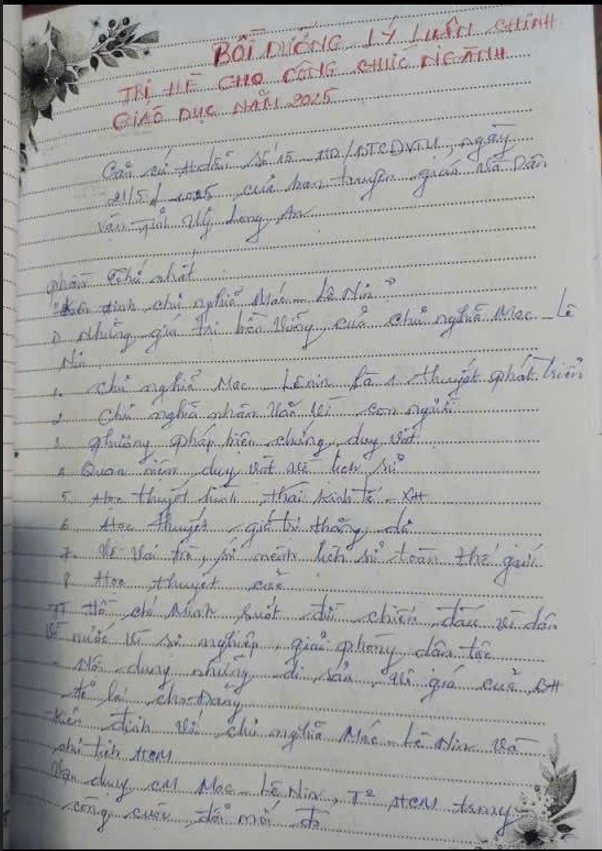 BỒI DƯỠNG LÝ LUẬN CHÍNH
TRỊ HÈ CHO CÔNG CHỨC NGÀNH
GIÁO DỤC NĂM 2025
Căn cứ số 15 HD/BTGDVTU, ngày
21/5/2025 của ban truyên giáo và Dân
vận Tỉnh Uỷ Long An
phần thứ nhất
Kiên định chủ nghĩa Mác - Lê Nin
những giá trị bền vững của chủ nghĩa Mac - Lê
Nin
1. chủ nghĩa Mac - Lênin là 1 thuyết phát triển
2. chủ nghĩa nhân văn vì con người
3. phương pháp biện chứng duy vật
4. Quan niệm duy vật về lịch sử
5. Học thuyết hình thái kinh tế - XH
6. Học thuyết giá trị thặng dư
7. Về vai trò, sứ mệnh lịch sử toàn thế giới
8. Học thuyết
Hồ chí Minh suốt đời chiến đấu vì dân
vì nước vì sự nghiệp giải phóng dân tộc
- Nội dung những di sản vô giá của BH
để lại cho Đảng
Kiên định với chủ nghĩa Mác - Lê Nin và
chủ tịch HCM
Vận dụng CM Mac - Lê Nin, T² HCM trong
công cuộc đổi mới đó